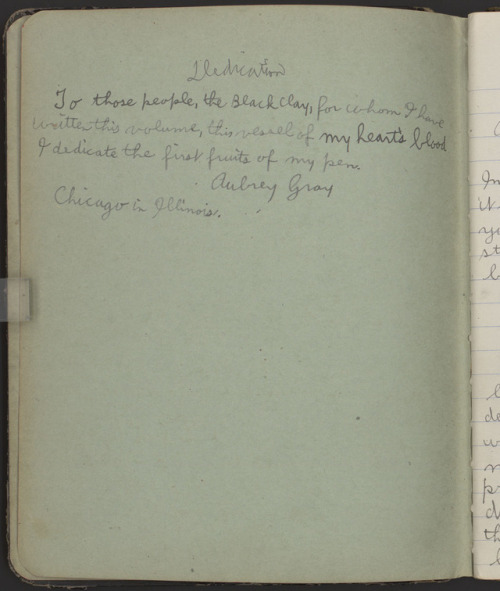 Dedication
To those people, the Black Clay, for whom I have
written this volume, this vessel of my heart's blood
I dedicate the first fruits of my pen.
Aubrey Gray
Chicago in Illinois.